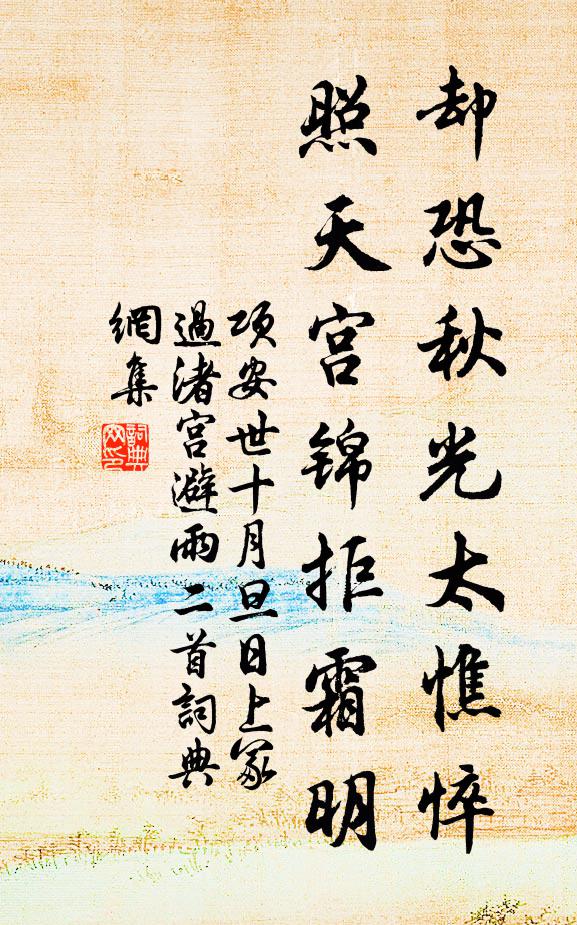 却恐秋光太憔悴
照天宫锦拒霜明
项安世十月旦日上冢
過渚宫避雨二首詞典
網集
詞典